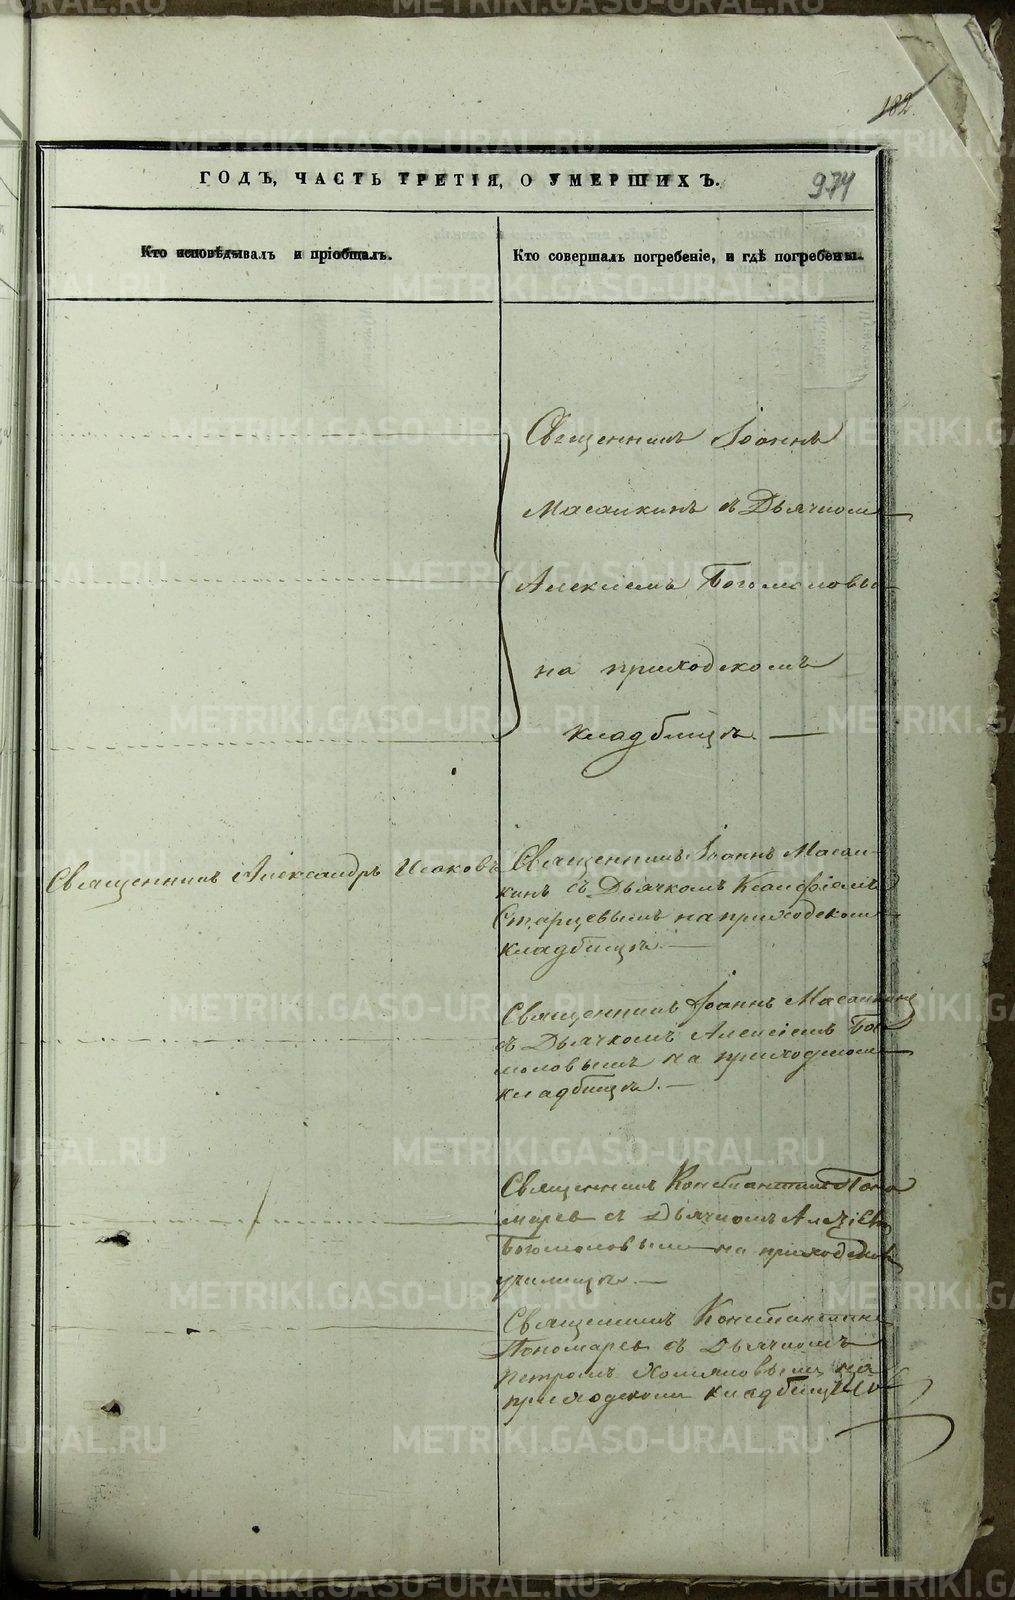 182.
ГОДЪ, ЧАСТЬ ТРЕТІЯ, О УМЕРШИХЪ.
974
Кто исповѣдывалъ и пріобщалъ.
Кто совершалъ погребеніе, и гдѣ погребены.
Священникъ Іоаннъ
Масалкинъ съ Дьячком
Алексіемъ Богомоловы
на приходскомъ
кладбищѣ. —
Священникъ Александръ Исаковъ
Священникъ Іоаннъ Масал-
кинъ съ Дьячкомъ
Старцевымъ на приходском
кладбищѣ. —
Священникъ Іоаннъ Масалкинъ
съ Дьячкомъ Алексіемъ Бого
моловымъ на приходском
кладбищѣ. —
Священникъ Константинъ Поно
марев съ Дьячкомъ Алексіем
Богомоловым на приходском
училищѣ. —
Священникъ Константинъ
Пономарев съ Дьячкомъ
Петромъ Хомяковым на
приходском кладбищѣ
METRIKI.GASO-URAL.RU